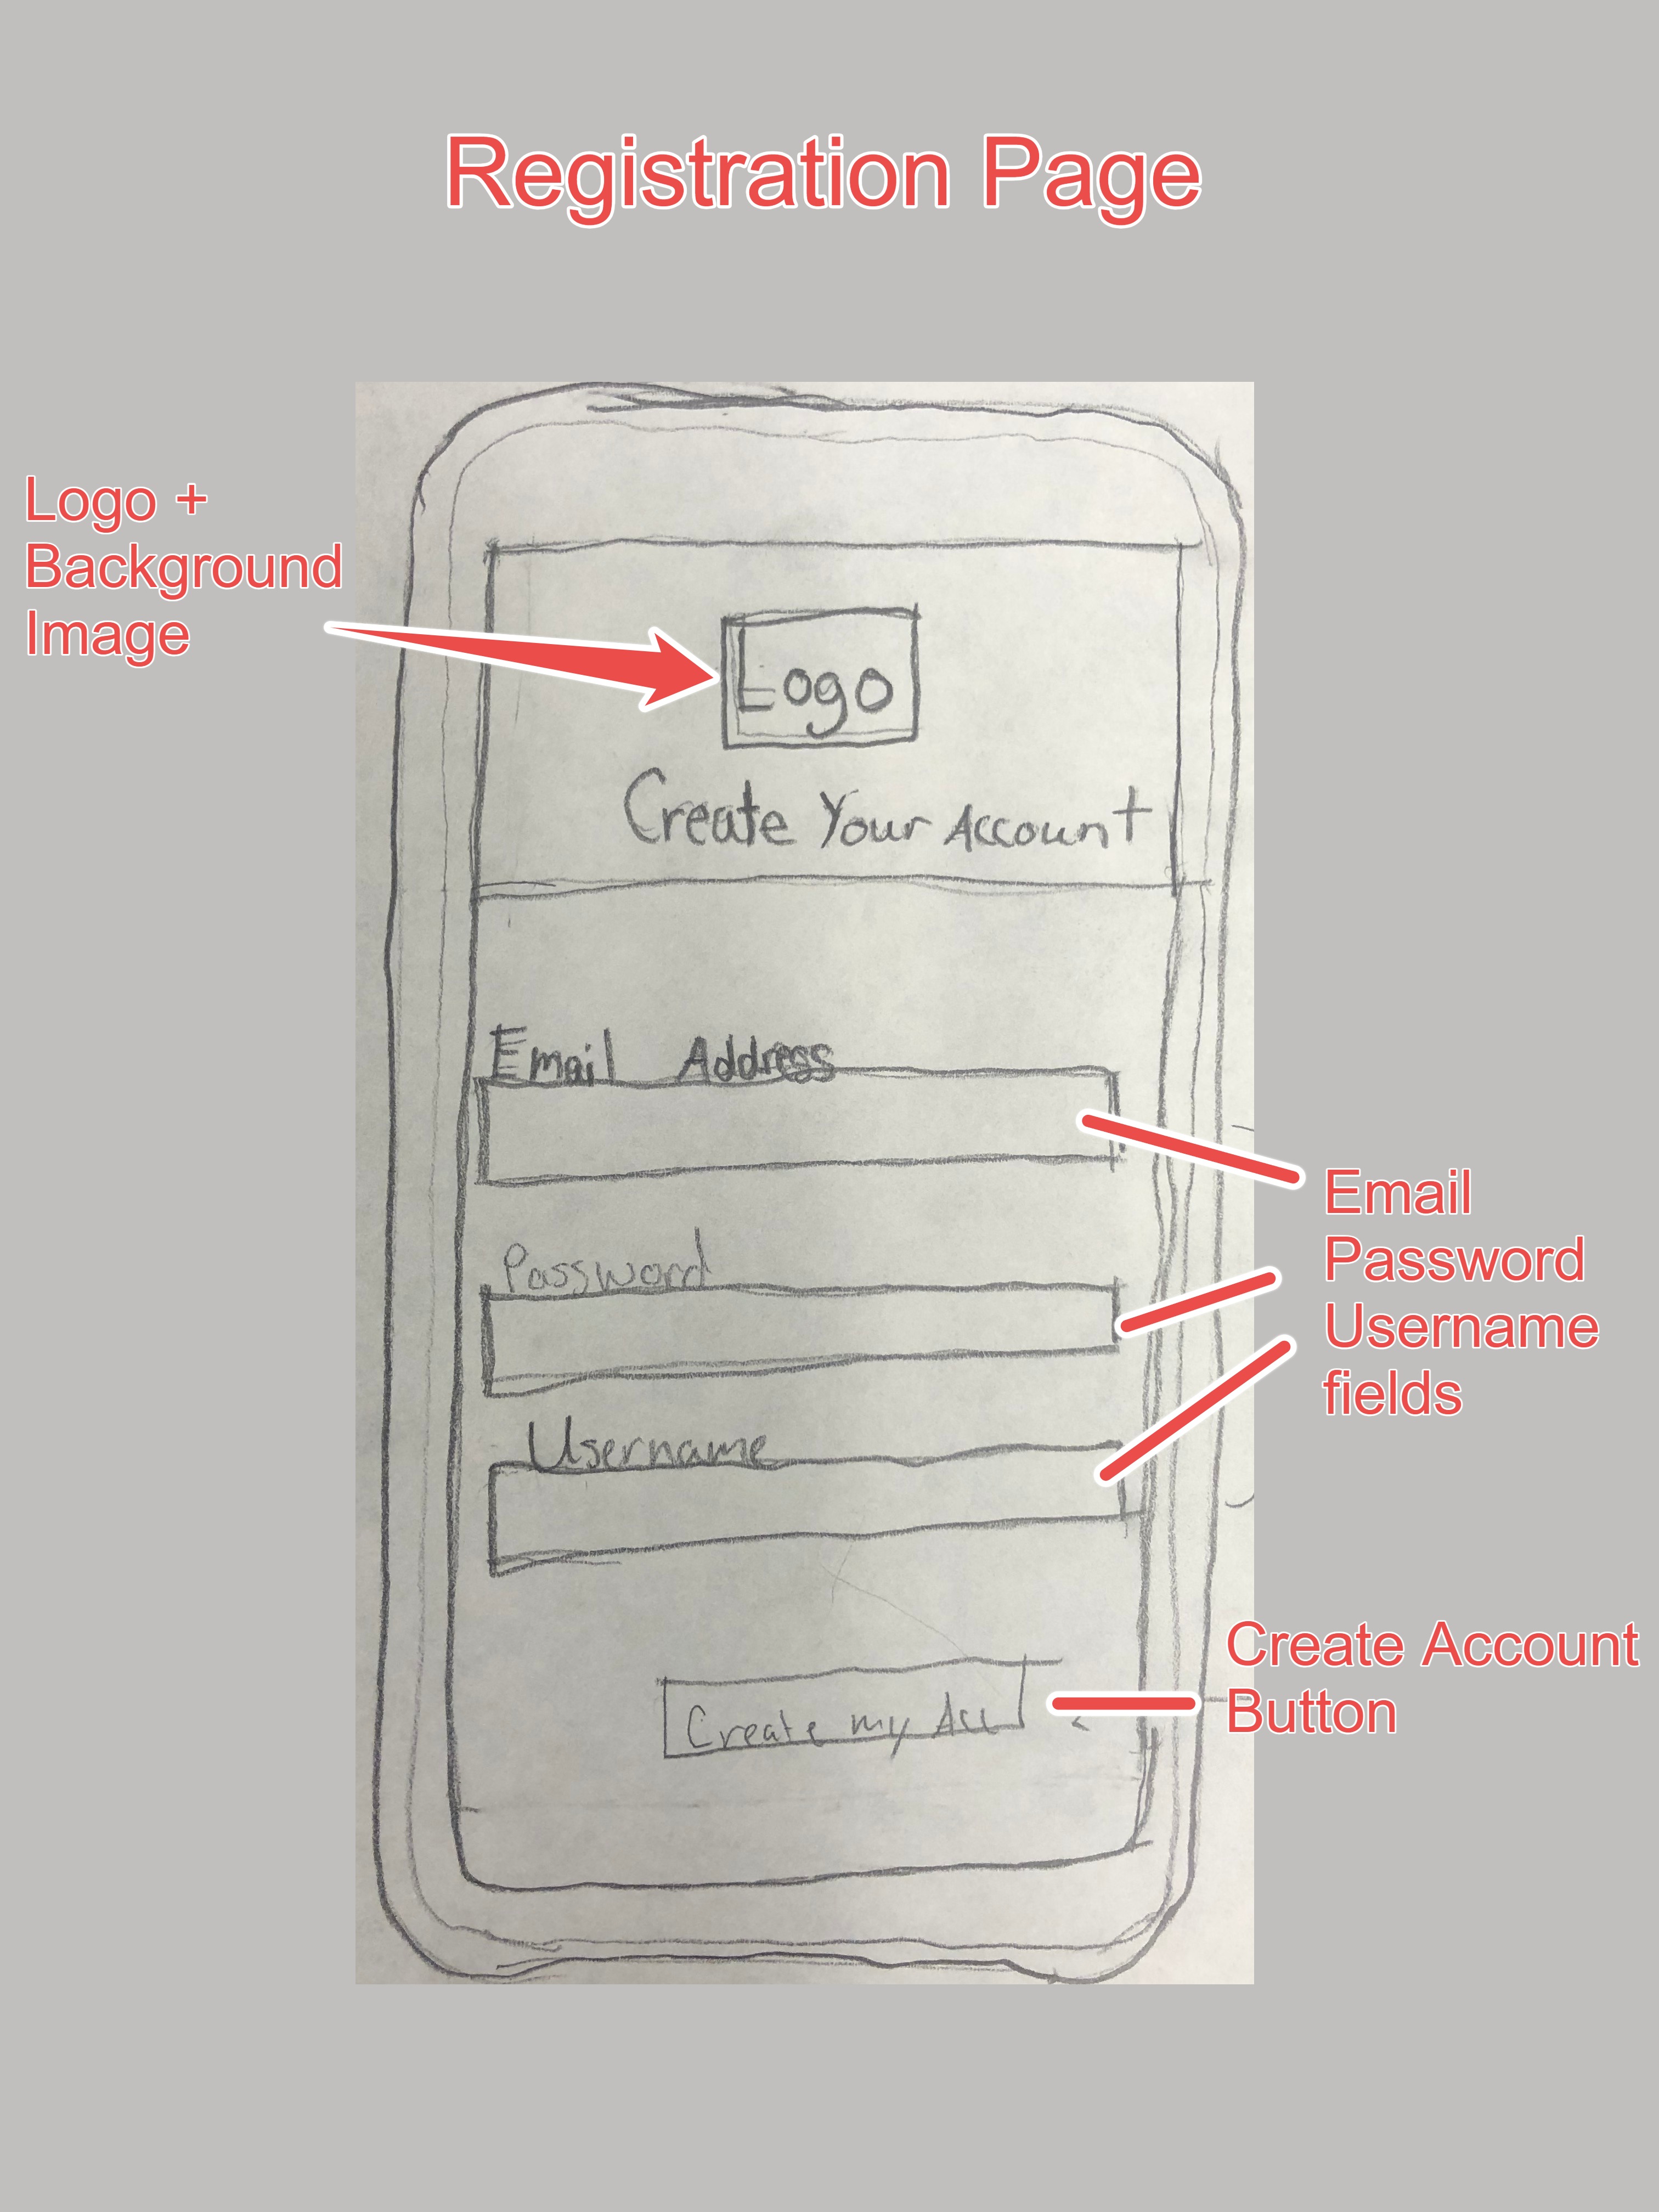 Registration Page
Logo +
Background
Image
Logo
Create Your Account
Email Address
Password
Username
Email
Password
Username
fields
Create my Acc
Create Account
Button